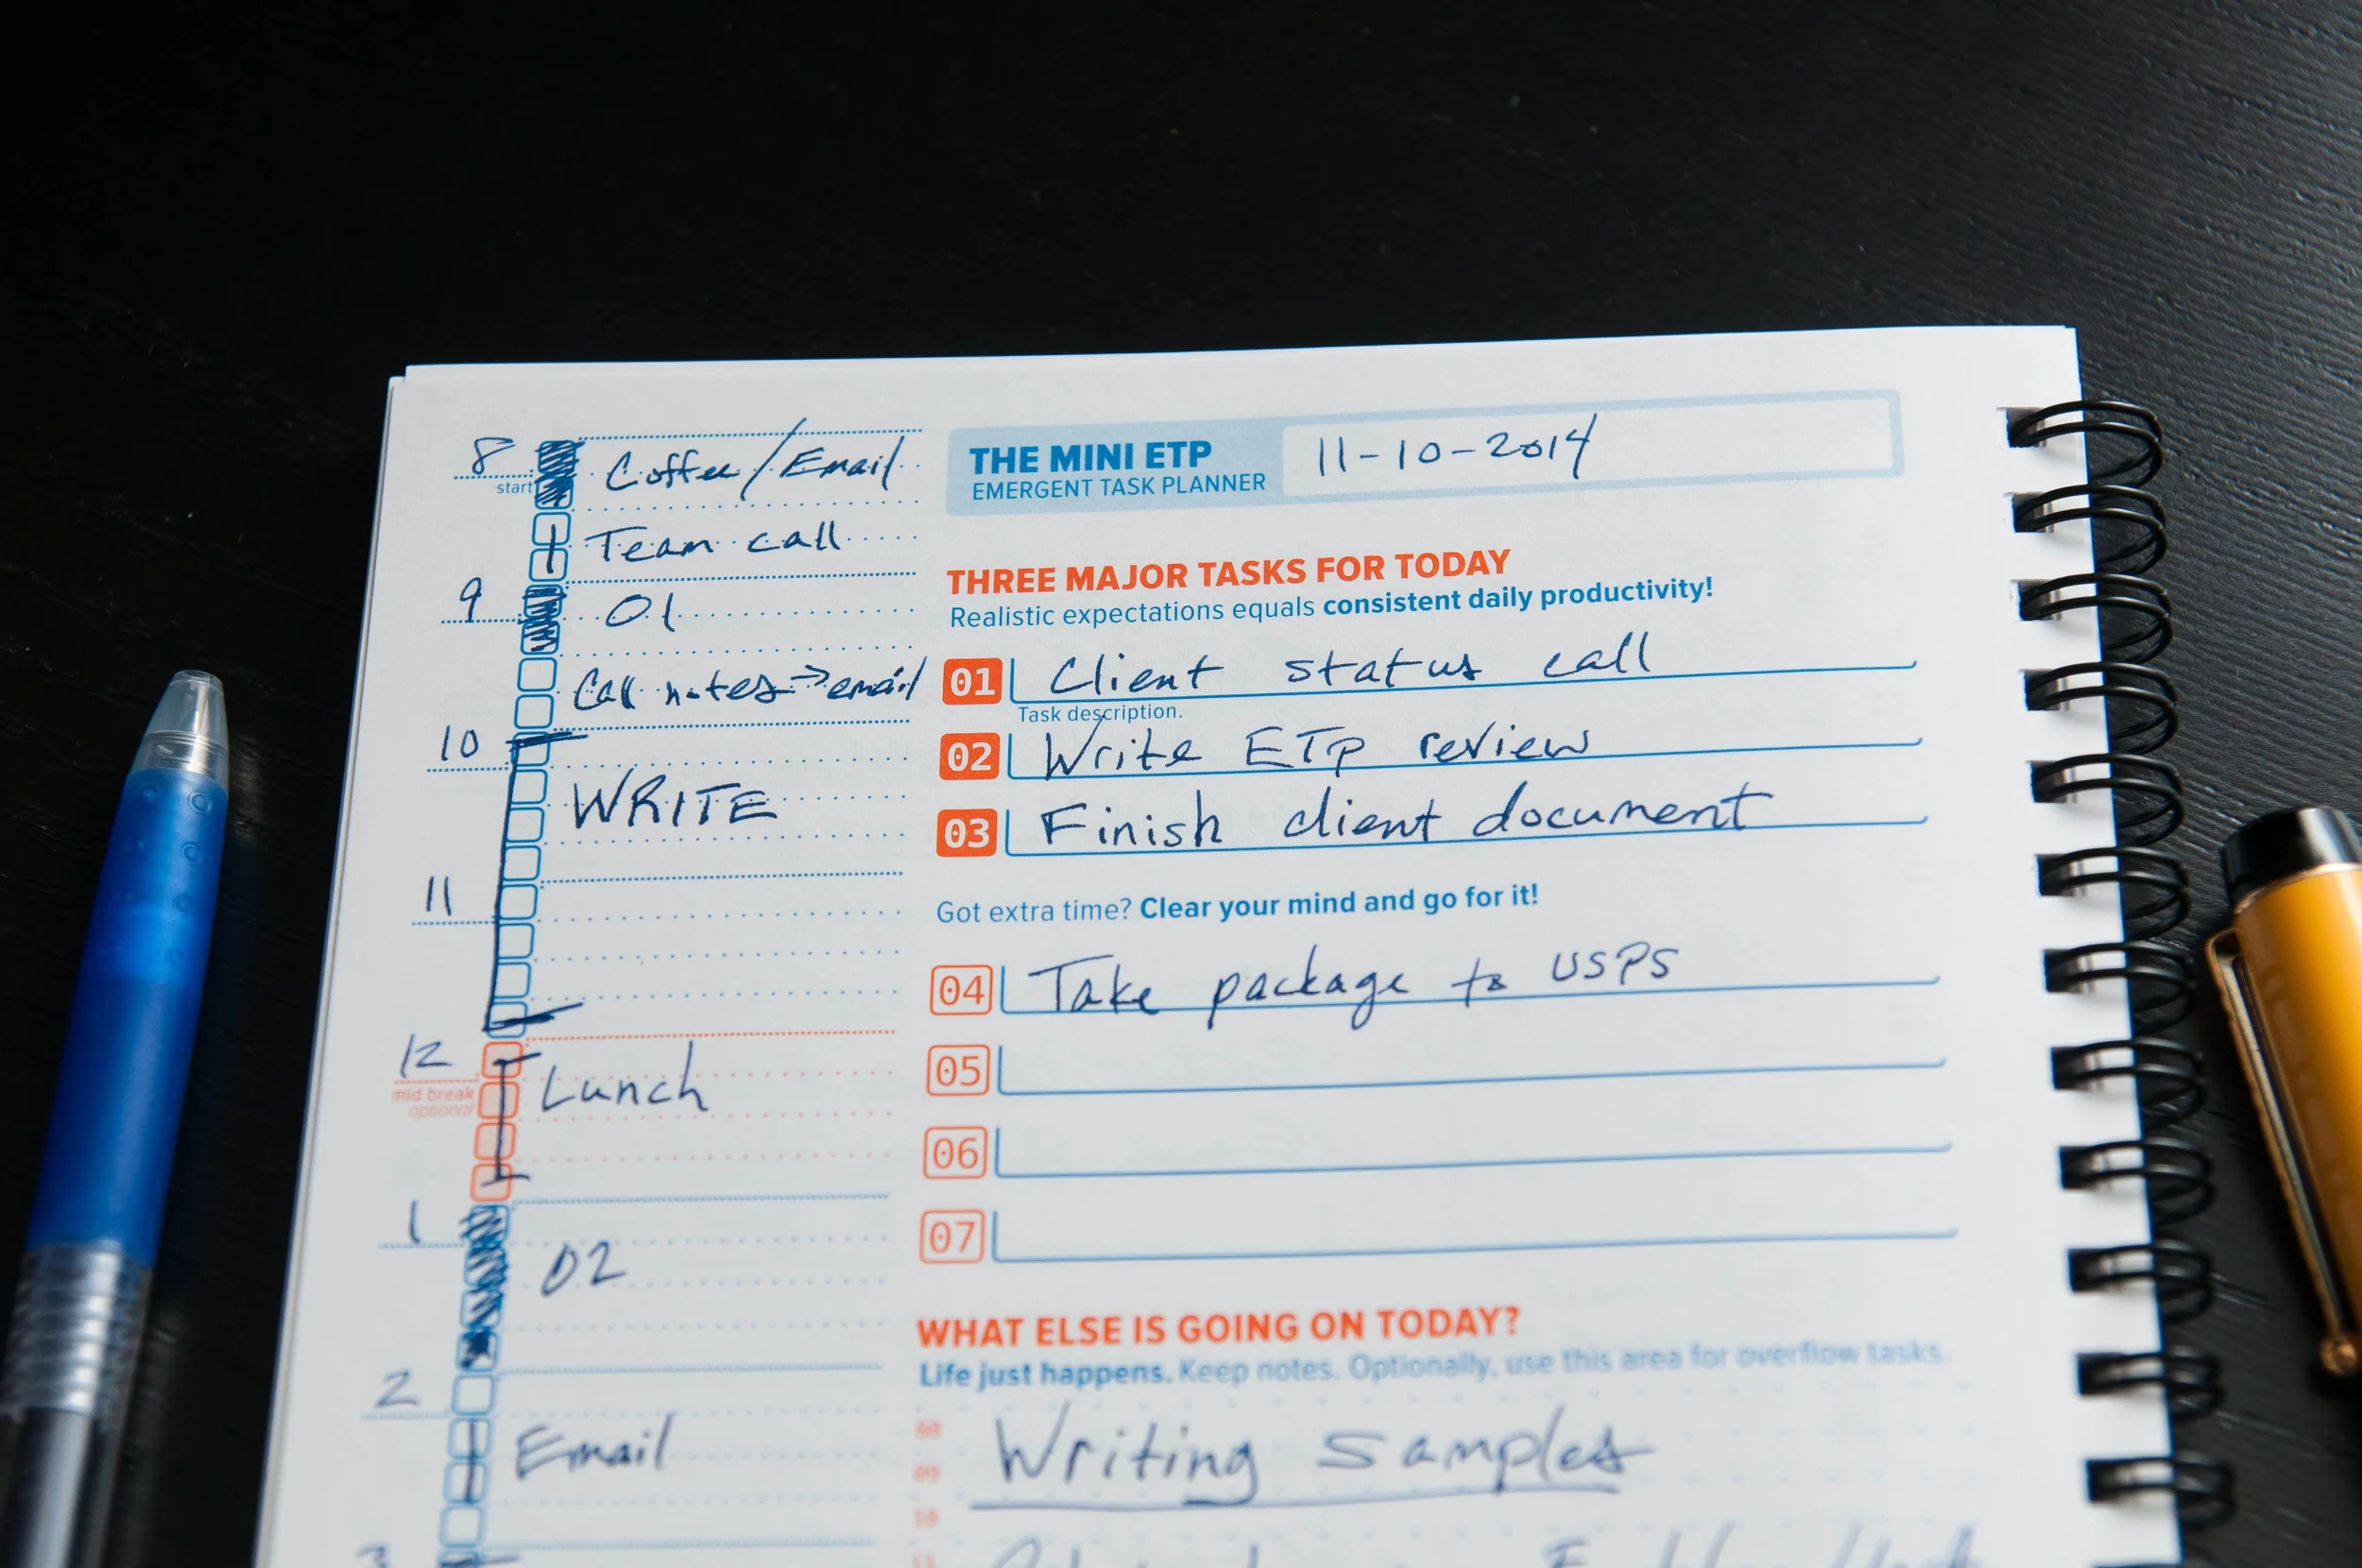 8
start
Coffee/Email
Team call
9
01
Call notes → email
10
WRITE
11
12
mid break
optional
Lunch
1
02
2
Email
3
THE MINI ETP
EMERGENT TASK PLANNER
11-10-2014
THREE MAJOR TASKS FOR TODAY
Realistic expectations equals consistent daily productivity!
01 Client status call
Task description.
02 Write ETP review
03 Finish client document
Got extra time? Clear your mind and go for it!
04 Take package to USPS
05
06
07
WHAT ELSE IS GOING ON TODAY?
Life just happens. Keep notes. Optionally, use this area for overflow tasks.
08
Writing samples
09
10
11